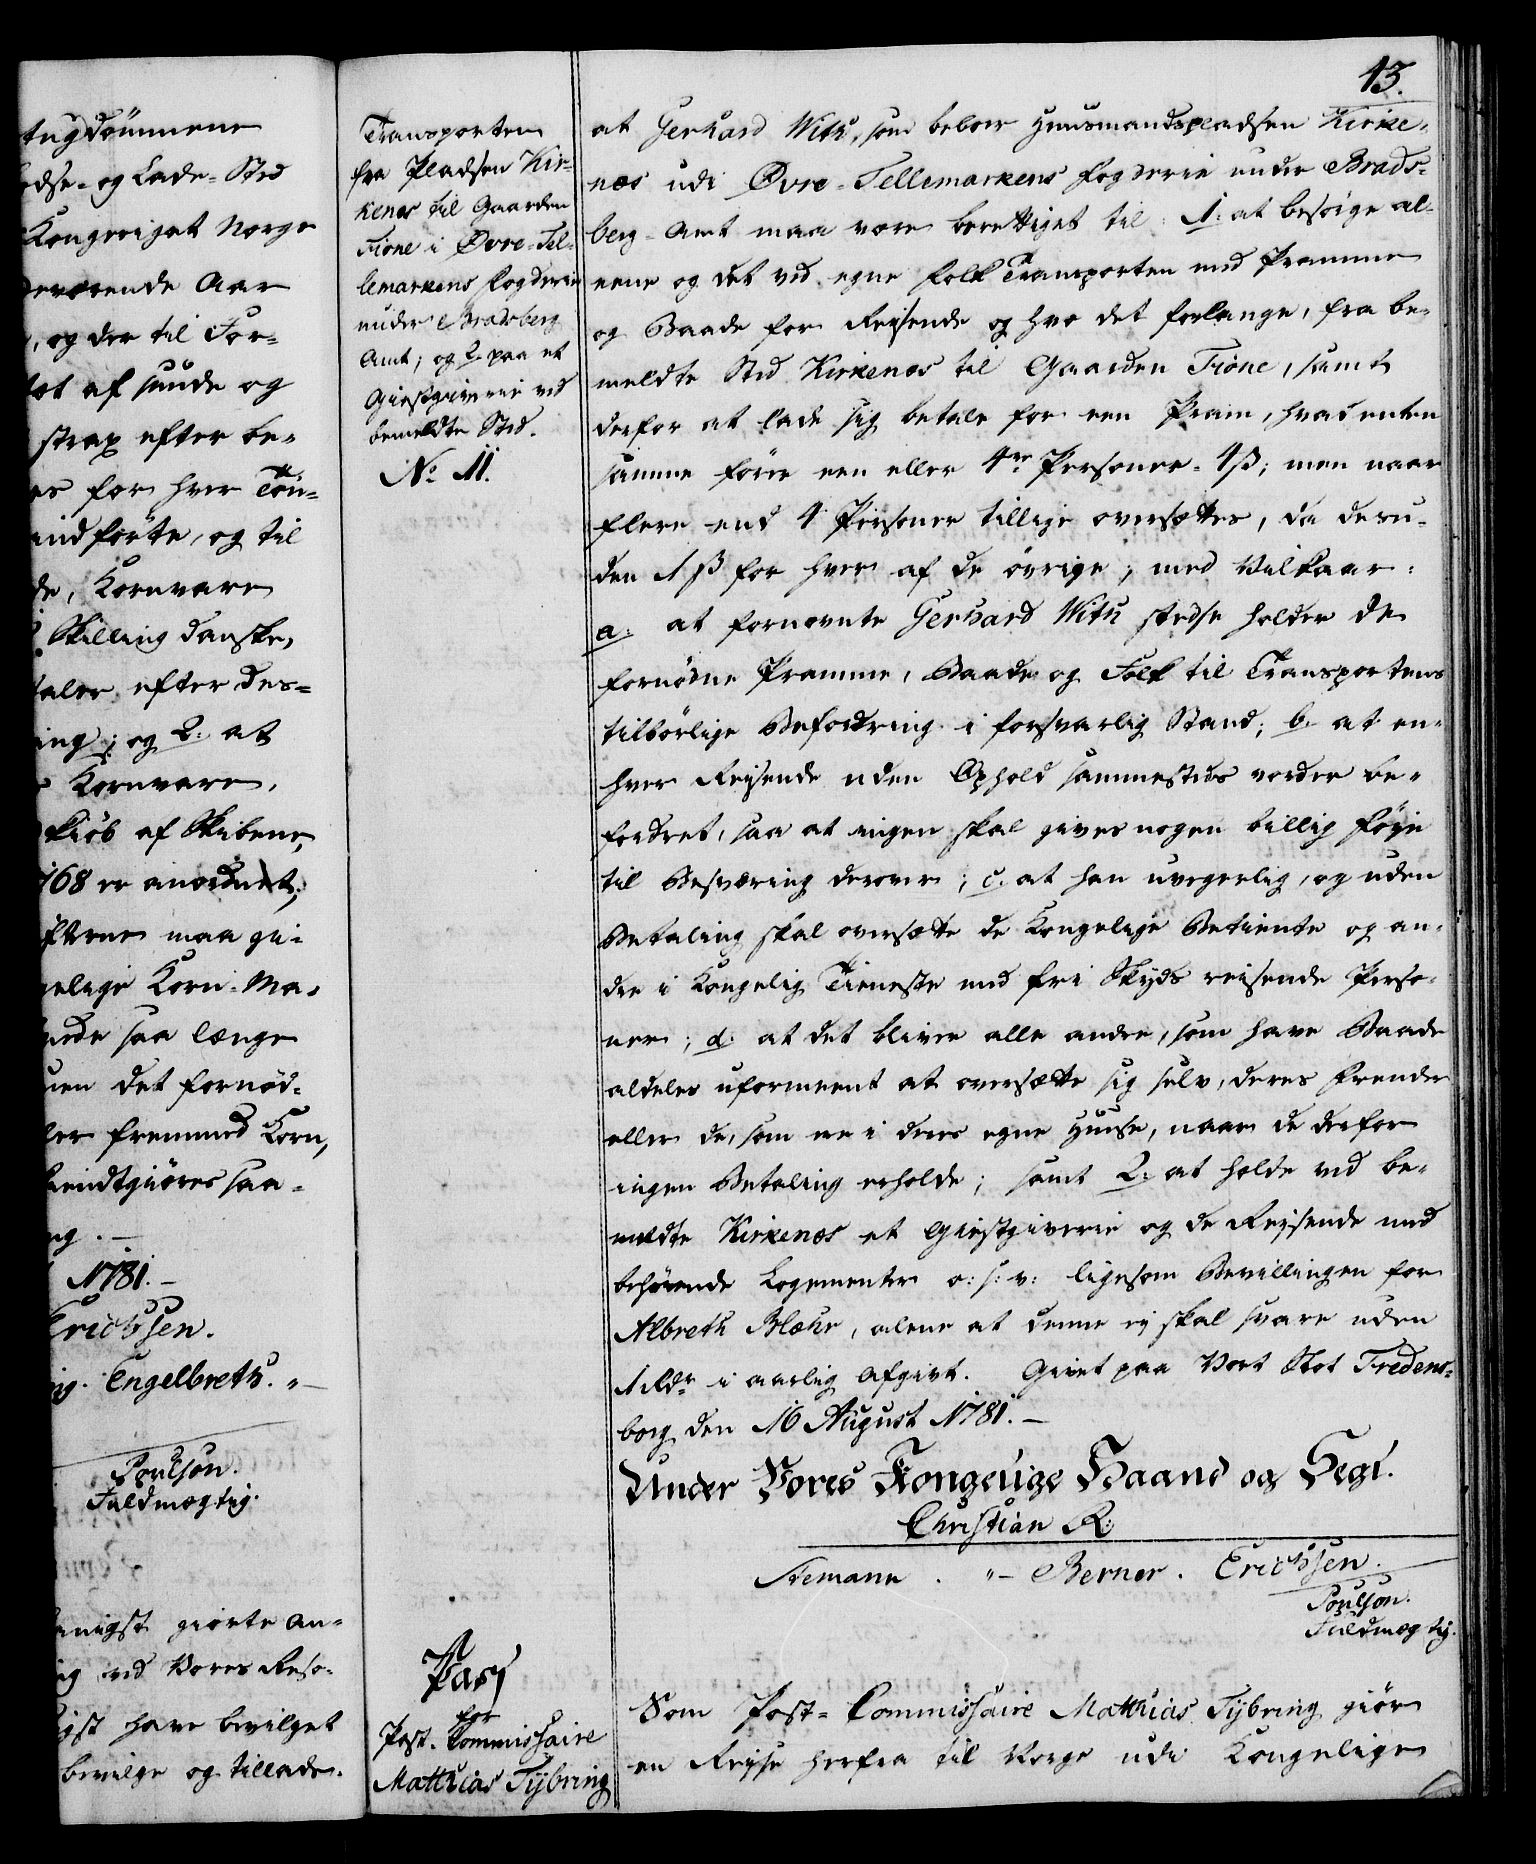 tugdömmene
edse- og Lade-Sted
Kongeriget Norge
værende Aar
, og der til For-
tet af sunde og
strax efter be-
es for hver Tøn-
indførte, og til
de, Kornvare
Skilling danske,
taler efter des-
ing; og 2. at
Kornvare,
kiöb af Skibene,
768 er anordnet;
ifterne maa gi-
gelige Korn-Ma-
ende saa længe
uen det fornød-
ler fremmed Korn,
kiendtgiöres saa-
ng. —
1781. —
Erichsen.
ig. Engelbreth. „—
Poulson.
Fuldmægtig.
anigst giorte An-
ig ved Vores Reso-
igst have bevilget
bevilge og tillade.
Transporten
fra Pladsen Kir-
kenæs til Gaarden
Fione i Øvre-Tel-
lemarkens Fogderie
under Bradsberg
Amt; og 2. paa et
Giestgiverie ved
bemeldte Sted.
No. 11.
Pass
for
Post-Commissaire
Matthias Tybring
13.
at Gerhard With, som beboer Huusmandspladsen Kirke-
næs udi Øvre-Tellemarkens Fogderie under Brads-
berg-Amt maa være berettiget til: 1. at besörge al-
eene og det ved egne Folk Transporten med Pramme
og Baade for Reisende og hvo det forlange, fra be-
meldte Sted Kirkenæs til Gaarden Fione, samt
derfor at lade sig betale for een Pram, hvad enten
samme förer een eller 4re Personer - 4 ß; men naar
flere end 4 Personer tillige oversættes, da desu-
den 1 ß for hver af de övrige; med Vilkaar:
a. at fornævnte Gerhard With stedse holder de
fornödne Pramme, Baade og Folk til Transportens
tilbörlige Befordring i forsvarlig Stand; b. at en-
hver Reisende uden Ophold sammesteds vorder be-
fordret, saa at ingen skal gives nogen billig Föye
til Besværing derover; c. at han uvegerlig, og uden
Betaling skal oversætte de Kongelige Betiente og an-
dre i Kongelig Tieneste med fri Skyds reisende Perso-
ner; d. at det bliver alle andre, som have Baade
aldeles uformeent at oversætte sig selv, deres Frender
eller de, som ere i deres egne Huuse, naar de derfor
ingen Betaling erholde; samt 2. at holde ved be-
meldte Kirkenæs et Giestgiverie og de Reisende med
behörende Logementer o: s: v: ligesom Bevillingen for
Albreth Blæhr, alene at denne ej skal svare uden
1 rdr. i aarlig Afgivt. Givet paa Vort Slot Fredens-
borg den 16 August 1781. —
Under Vores Kongelige Haand og Segl.
Christian R.
Stemann. „— Berner. Erichsen.
Poulson.
Fuldmægtig.
Som Post-Commissaire Matthias Tybring giör
en Reyse herfra til Norge udi Kongelige